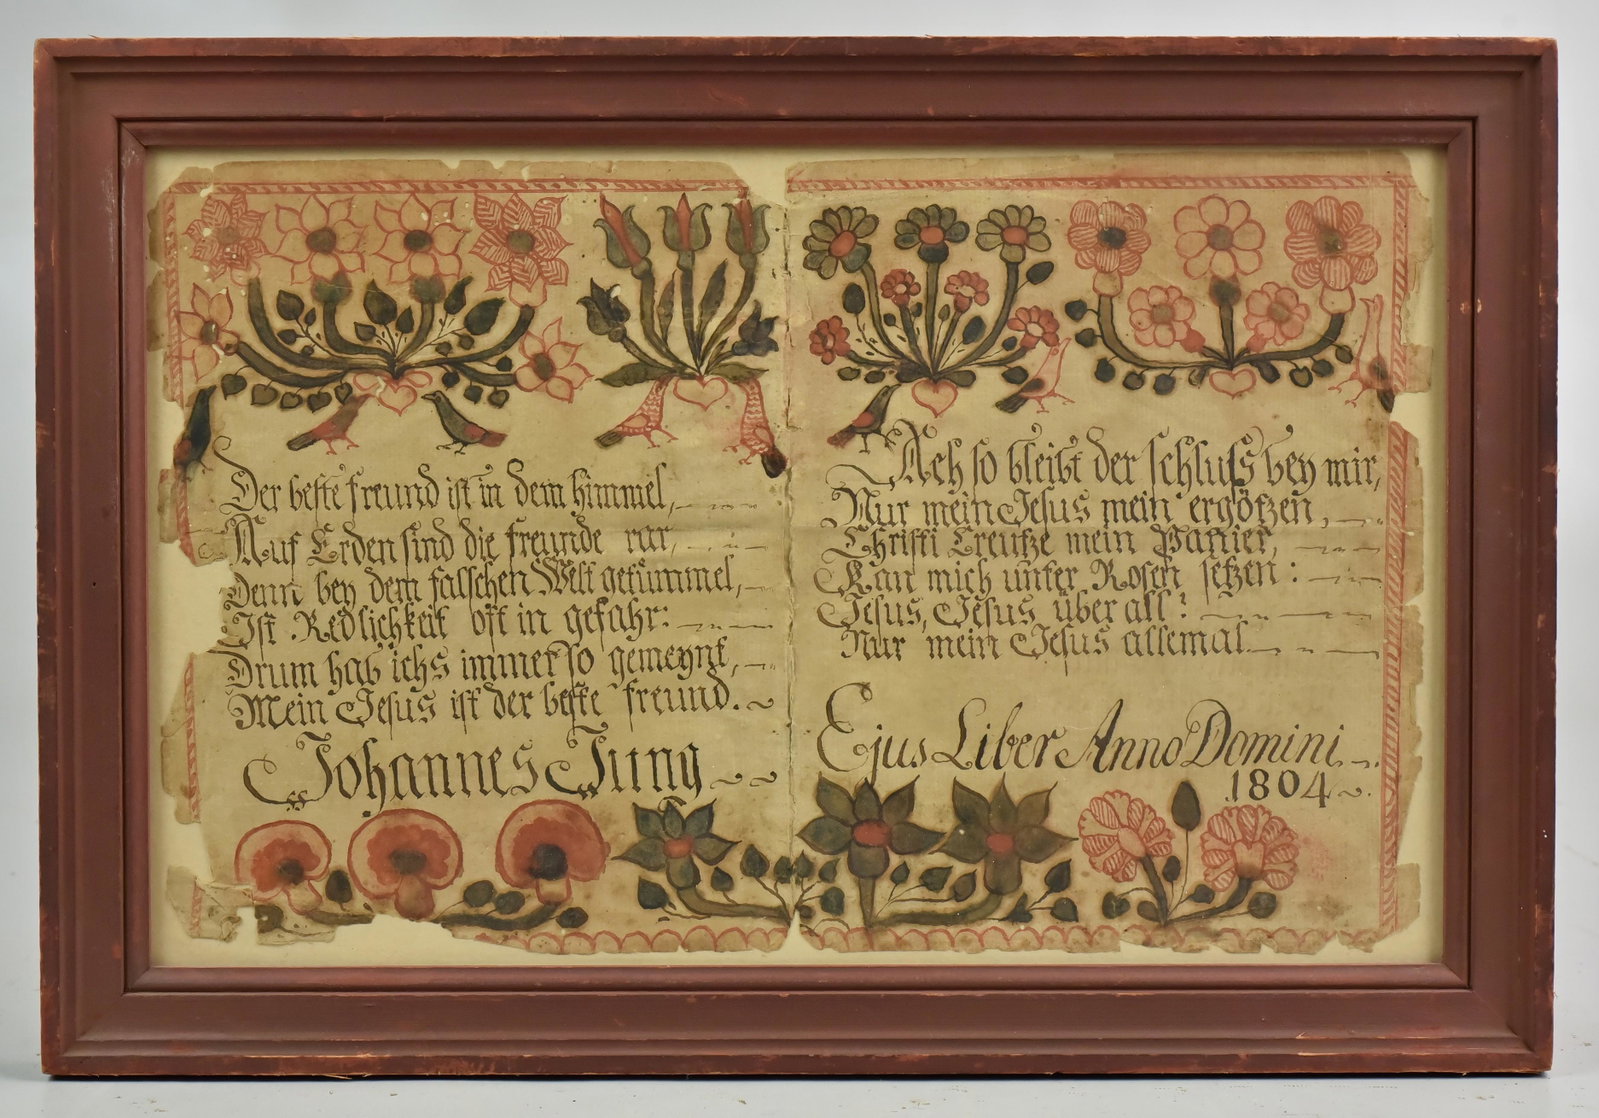 Der beste freund ist in dem himmel,
Auf Erden sind die freunde rar,
Denn bey dem falschen Welt getümmel,
Ist Redlichkeit oft in gefahr:
Drum hab ichs immer so gemeynt,
Mein Jesus ist der beste freund.
Johannes Jung
Ach so bleibt der schluss bey mir,
Nur mein Jesus mein ergötzen,
Christi Creutze mein Panier,
Kan mich unter Rosen setzen:
Jesus, Jesus über all:
Nur mein Jesus allemal
Ejus Liber Anno Domini
1804